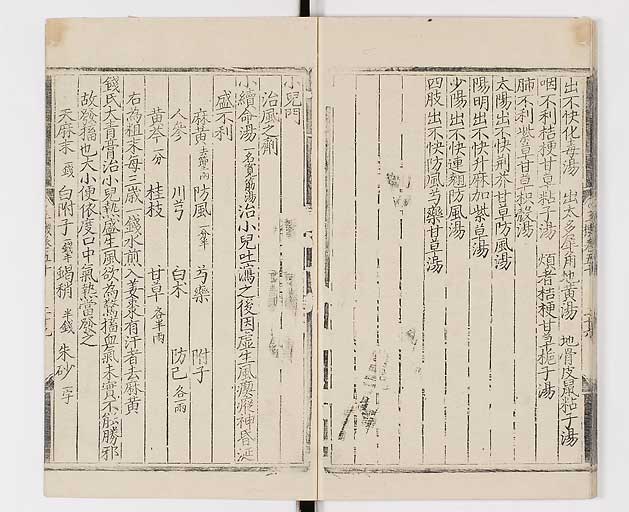 出不快化毒湯 出太多犀角地黄湯 地骨皮鼠粘子湯
咽不利桔梗甘草鼠粘子湯 煩者桔梗甘草梔子湯
肺不利紫草甘草枳殼湯
太陽出不快荊芥甘草防風湯
陽明出不快升麻加紫草湯
少陽出不快連翹防風湯
四肢出不快防風芍藥甘草湯
小兒門
治風之劑
小續命湯 治小兒吐瀉之後因虛生風瘈瘲神昏涎
盛不利
麻黄 防風 芍藥 附子
人參 川芎 白朮 防己 各兩
黄芩 桂枝 甘草 各半兩
右為粗末每三歲一錢水煎入姜汞有汗者去麻黄
錢氏大青膏治小兒熱盛生風欲為驚搐血氣未實不能勝邪
故發搐也大小便依度口中氣熱當發之
天麻末 一錢 白附子 蝎稍 半錢 朱砂